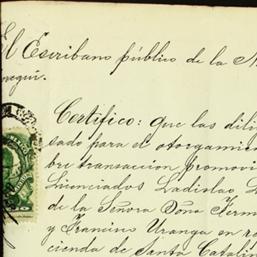 El Escribano público de la N
negui.
Certifico: que las dili
sado para el otorgamie
bre transaccion promovi
Licenciados Ladislao L
de la Señora Doña Ferm
y Francisco Uranga en re
cienda de Santa Catalin